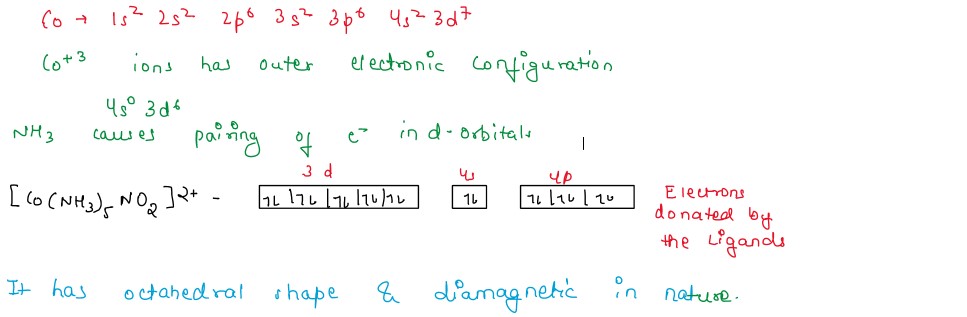 Co → 1s² 2s² 2p⁶ 3s² 3p⁶ 4s² 3d⁷
Co⁺³ ions has outer electronic configuration
4s⁰ 3d⁶
NH₃ causes pairing of e⁻ in d-orbitals
3d 4s 4p
[Co(NH₃)₅ NO₂]²⁺ - ↿⇂ | ↿⇂ | ↿⇂ | ↿⇂ | ↿⇂ ↿⇂ ↿⇂ | ↿⇂ | ↿⇂
Electrons
donated by
the Ligands
It has octahedral shape & diamagnetic in nature.